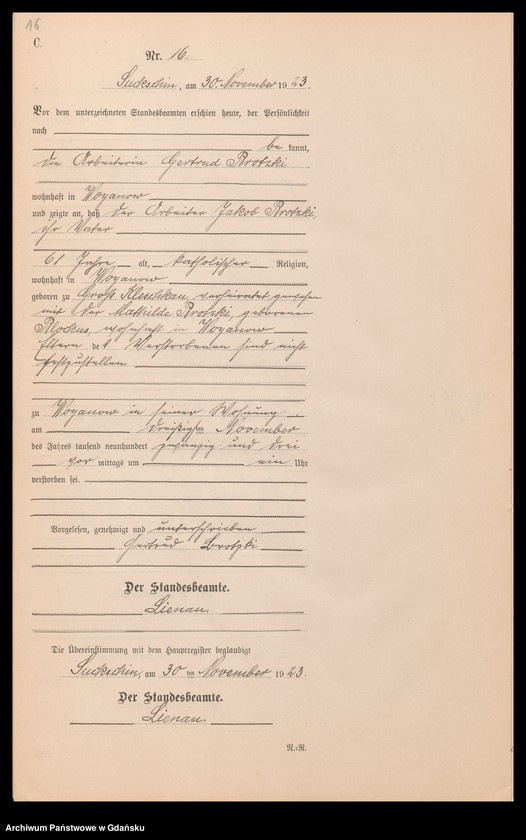 16
C.
Nr. 16.
Suckschin, am 30. November 1923.
Vor dem unterzeichneten Standesbeamten erschien heute, der Persönlichkeit
nach
be kannt,
die Arbeiterin Gertrud Brotzki
wohnhaft in Woyanow
und zeigte an, daß der Arbeiter Jakob Brotzki,
ihr Vater
61 Jahre alt, katholischer Religion,
wohnhaft in Woyanow
geboren zu Groß Kleschkau, verheiratet gewesen
mit der Mathilde Brotzki, geborenen
wohnhaft in Woyanow
Eltern des Verstorbenen sind nicht
festzustellen
zu Woyanow in seiner Wohnung
am dreißigsten November
des Jahres tausend neunhundert zwanzig und drei
vor mittags um ein Uhr
verstorben sei.
Vorgelesen, genehmigt und unterschrieben
Gertrud Brotzki
Der Standesbeamte.
Lienau.
Die Übereinstimmung mit dem Hauptregister beglaubigt
Suckschin, am 30 ten November 1923.
Der Standesbeamte.
Lienau.
N.-R.
Archiwum Państwowe w Gdańsku